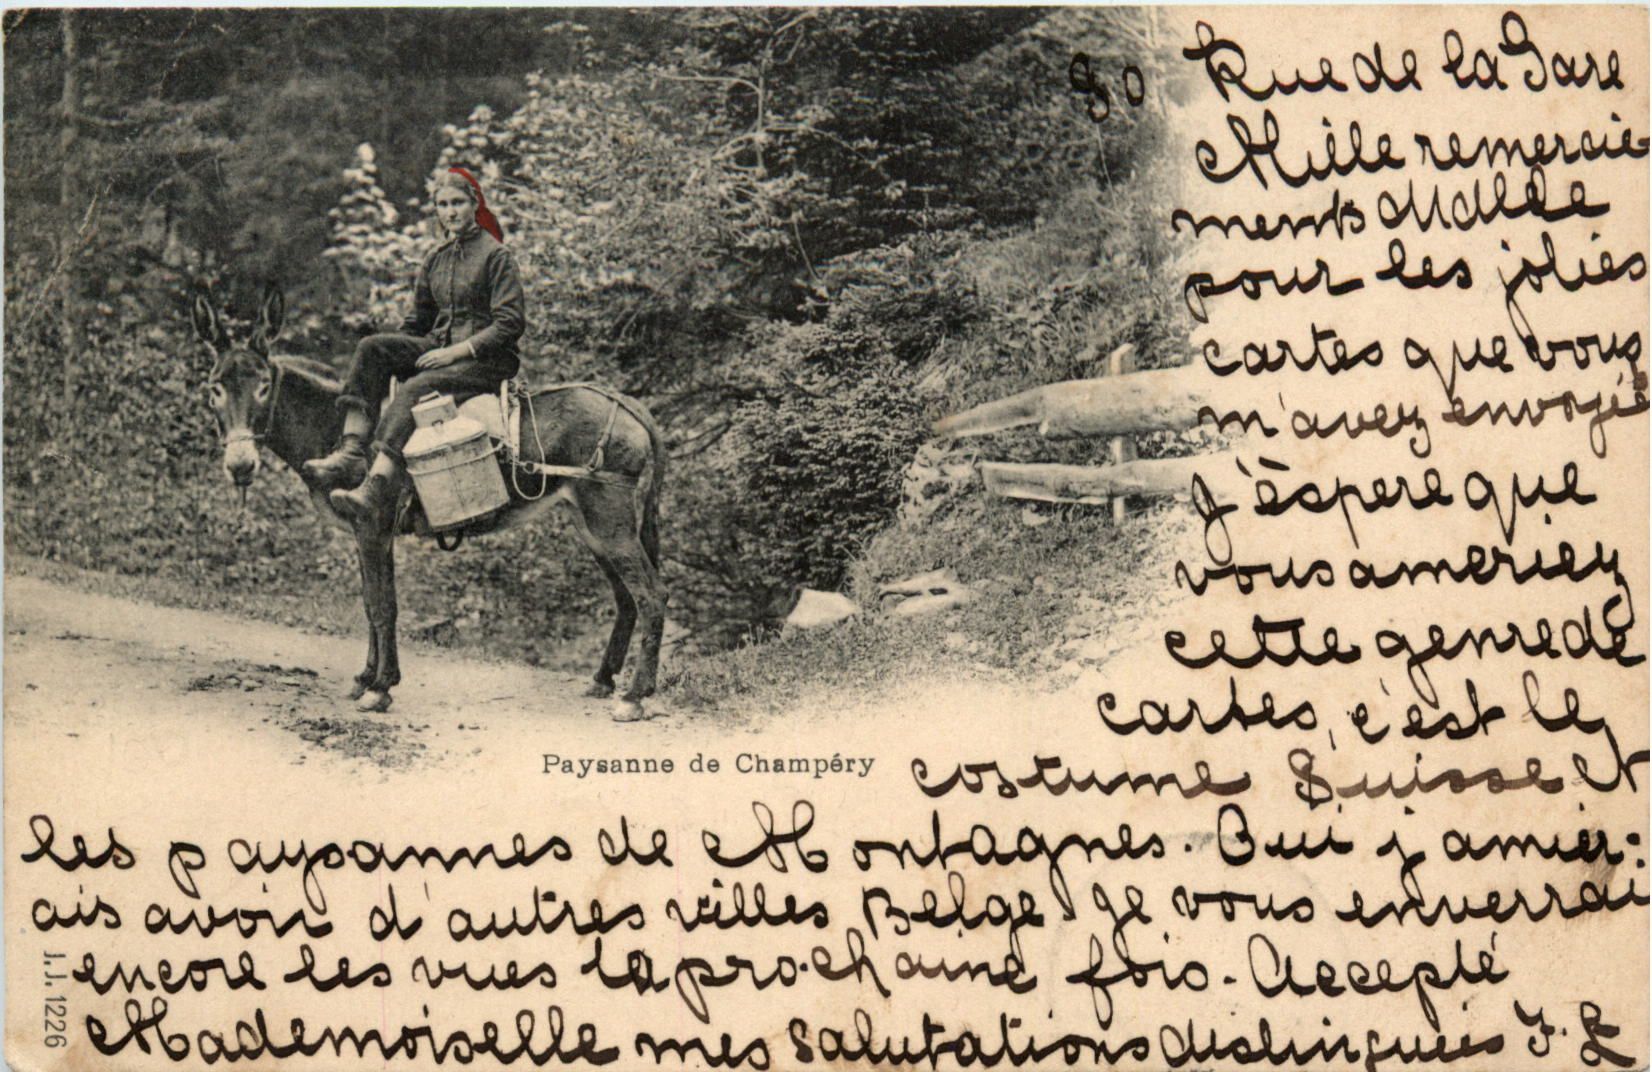 80 Rue de la Gare
Mille remercie-
ments Mdlle
pour les jolies
cartes que vous
m'avez envoyié
J'èspere que
vous ameriez
cette genre de
cartes, c'est le
Paysanne de Champéry
costume Suisse et
les paysannes de Montagnes. Oui j'amier-
ais avoir d'autres villes Belge. Je vous enverrai
encore les vues la prochaine fois. Accepté
Mademoiselle mes Salutations distinguées F. L
J.J. 1226